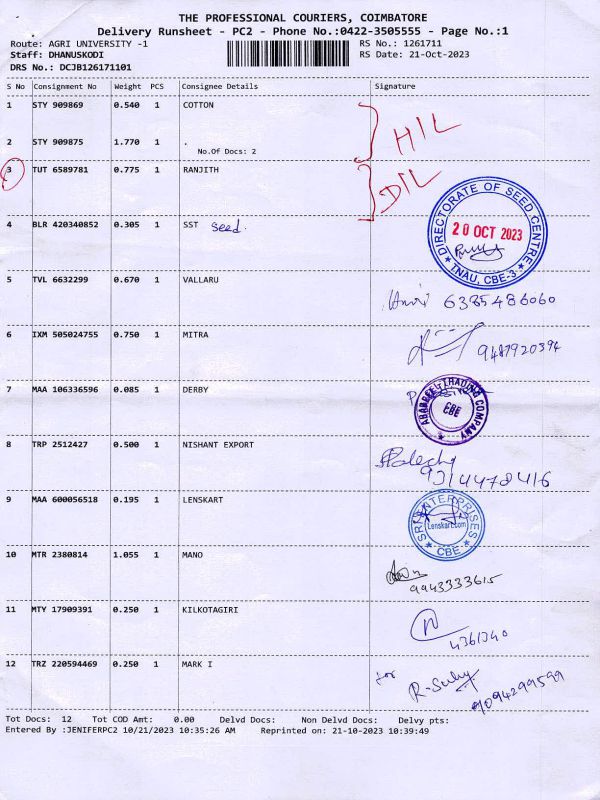 THE PROFESSIONAL COURIERS, COIMBATORE
Delivery Runsheet - PC2 - Phone No.:0422-3505555 - Page No.:1
Route: AGRI UNIVERSITY -1 RS No.: 1261711
Staff: DHANUSKODI RS Date: 21-Oct-2023
DRS No.: DCJB126171101
S No Consignment No Weight PCS Consignee Details Signature
1 STY 909869 0.540 1 COTTON
HIL
2 STY 909875 1.770 1 .
No.Of Docs: 2
3 TUT 6589781 0.775 1 RANJITH
DIL
4 BLR 420340852 0.305 1 SST seed.
DIRECTORATE OF SEED CENTRE
20 OCT 2023
TNAU, CBE-3
5 TVL 6632299 0.670 1 VALLARU
6385486060
6 IXM 505024755 0.750 1 MITRA
9487920394
7 MAA 106336596 0.085 1 DERBY
TRADING COMPANY
CBE
8 TRP 2512427 0.500 1 NISHANT EXPORT
9 MAA 600056518 0.195 1 LENSKART
SRI ENTERPRISES
Lenskart.com
CBE
10 MTR 2380814 1.055 1 MANO
9943333615
11 MTY 17909391 0.250 1 KILKOTAGIRI
12 TRZ 220594469 0.250 1 MARK I
for
9094299599
Tot Docs: 12 Tot COD Amt: 0.00 Delvd Docs: Non Delvd Docs: Delvy pts:
Entered By :JENIFERPC2 10/21/2023 10:35:26 AM Reprinted on: 21-10-2023 10:39:49